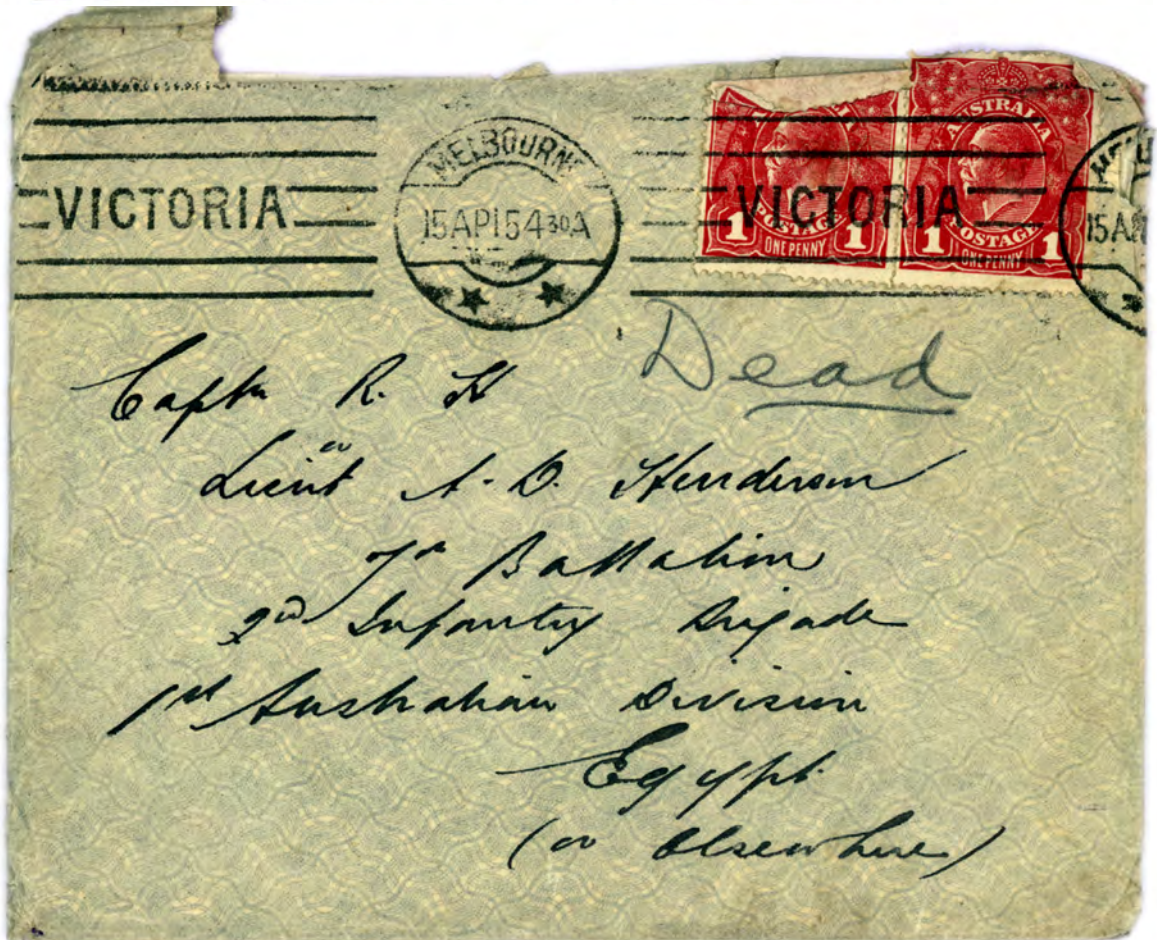 VICTORIA
MELBOURNE
15 AP 15 4 30 A
VICTORIA
AUSTRALIA
POSTAGE
1 ONE PENNY 1
POSTAGE
1 ONE PENNY 1
15 AP
Dead
Captn R. H
or
Lieut A. D. Henderson
7th Battalion
2nd Infantry Brigade
1st Australian Division
Egypt
(or Elsewhere)